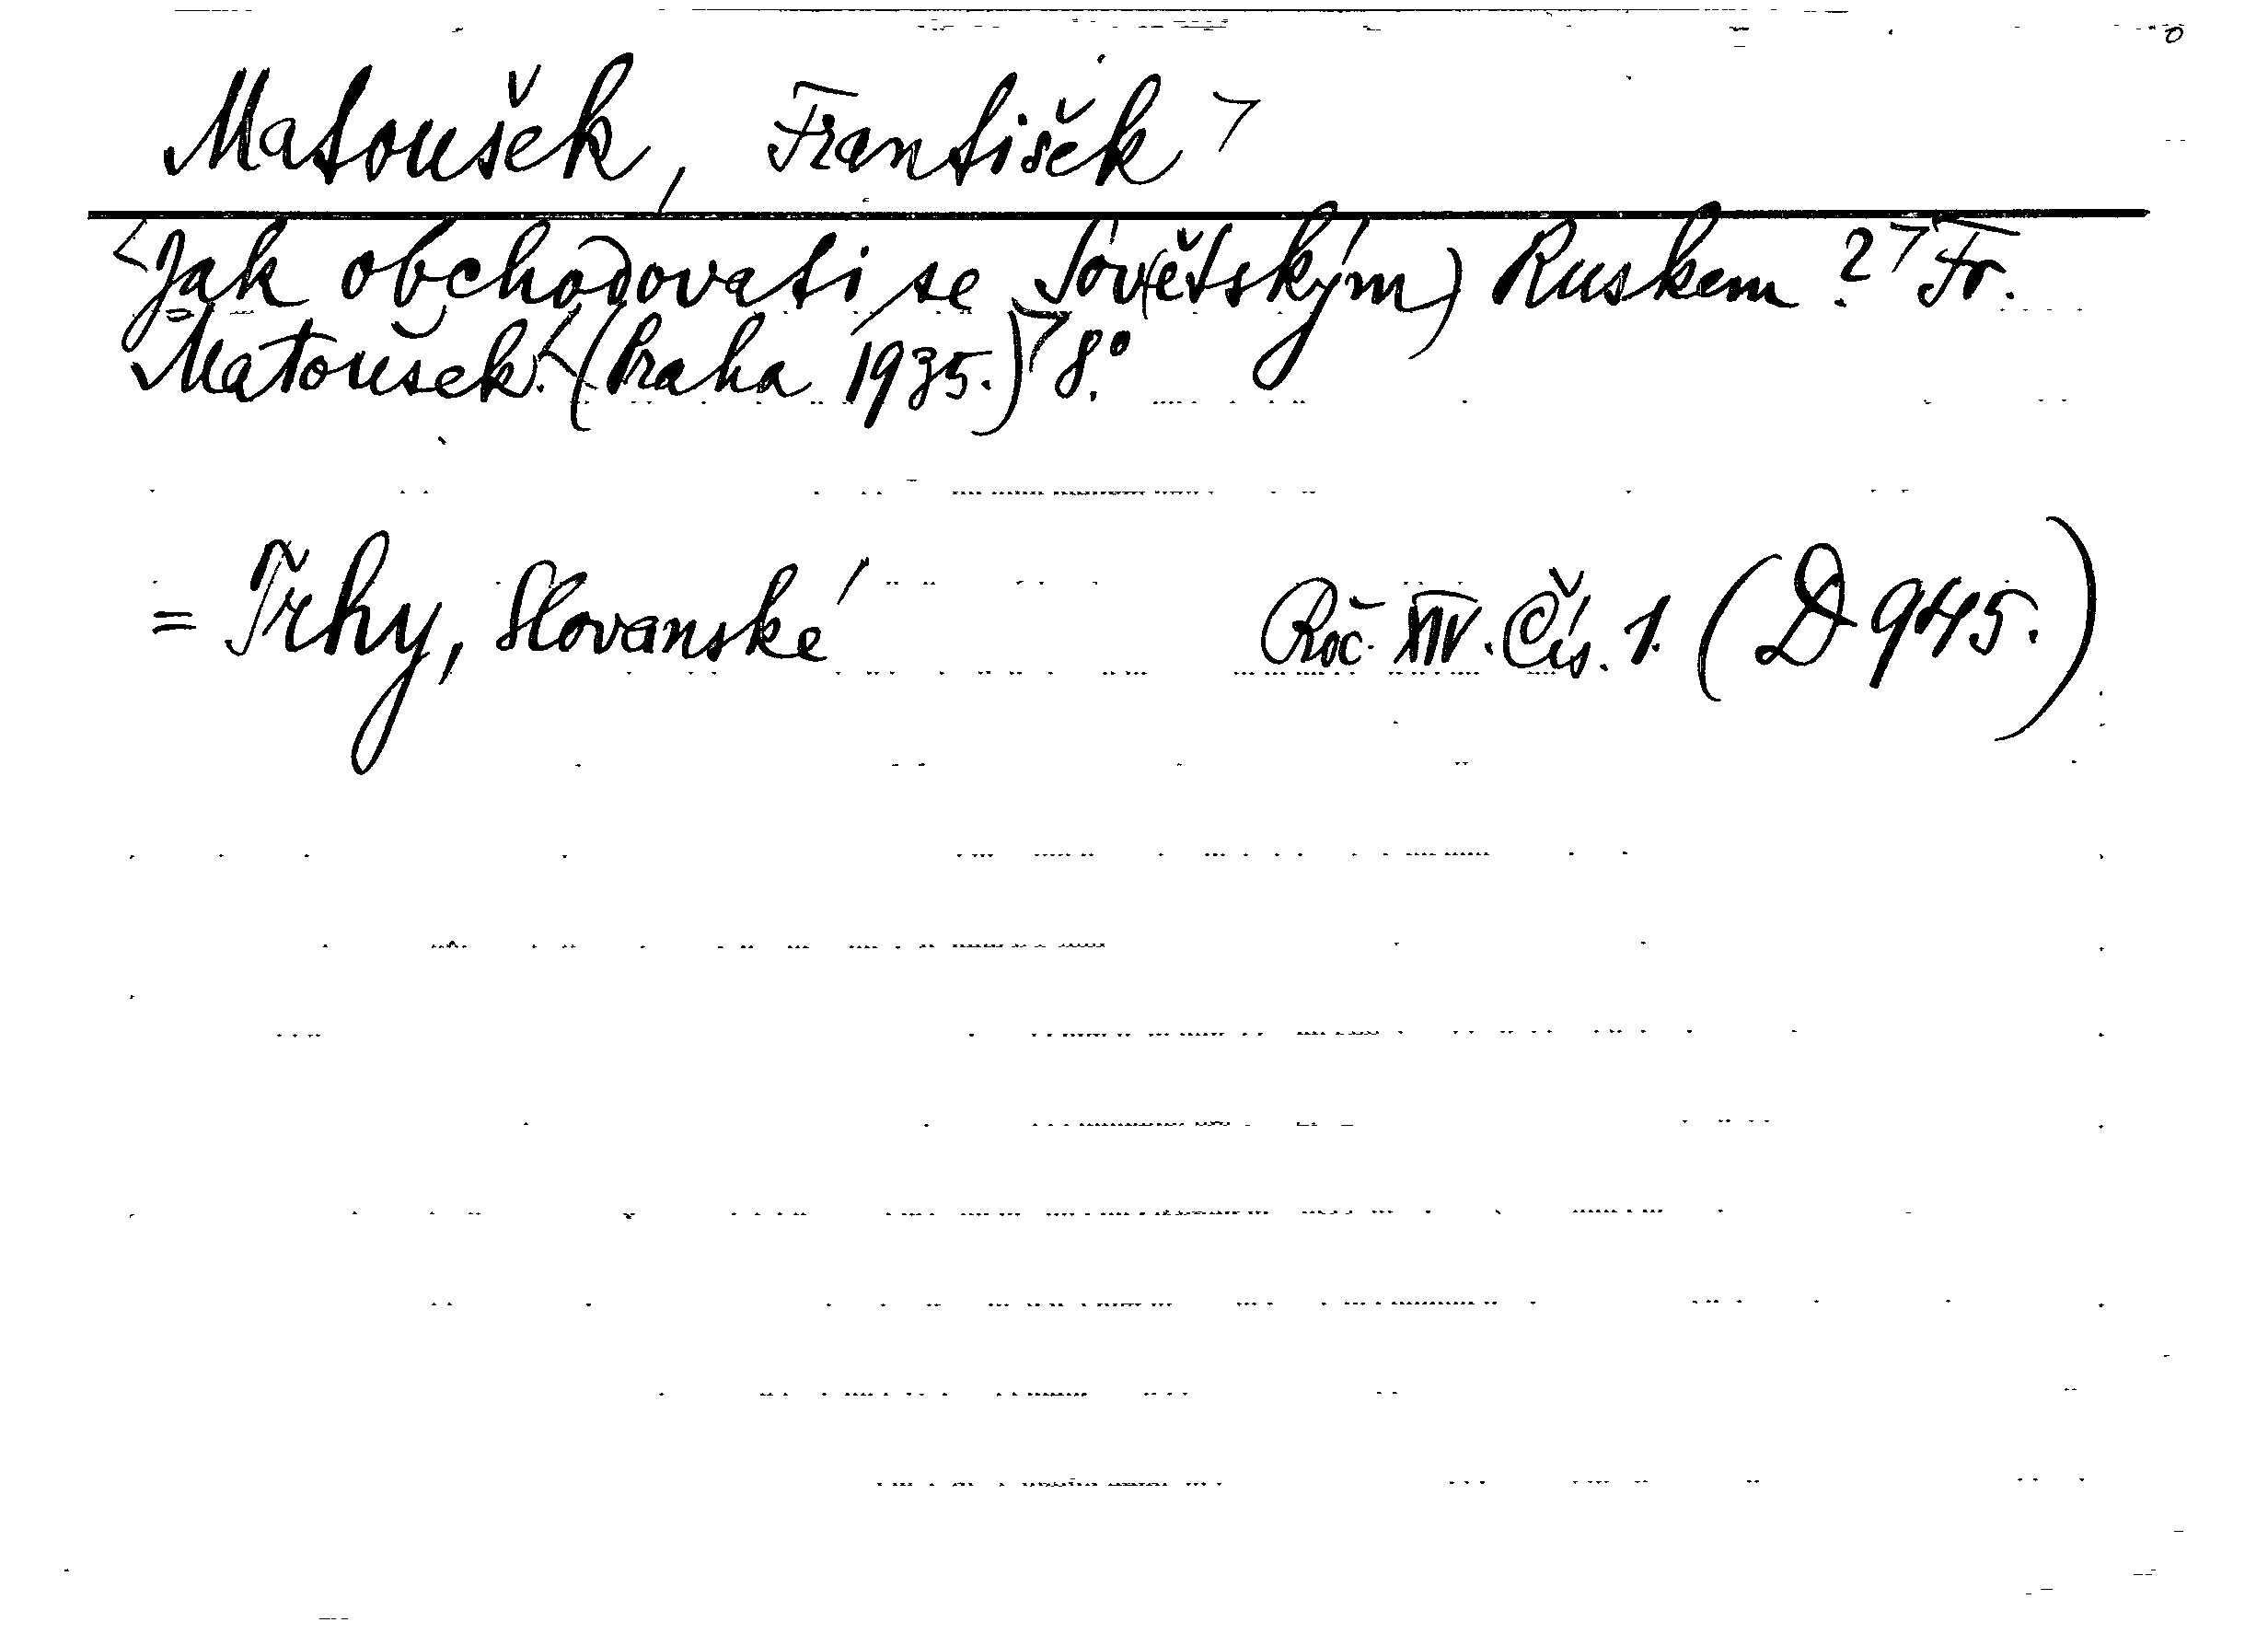 Matoušek, František >
<Jak obchodovati se Sov(ětským) Ruskem ?> Fr.
Matoušek. <(Praha 1935.)> 8.°
= Trhy, Slovanské Roč. XIV. Čís. 1. (D 945.)